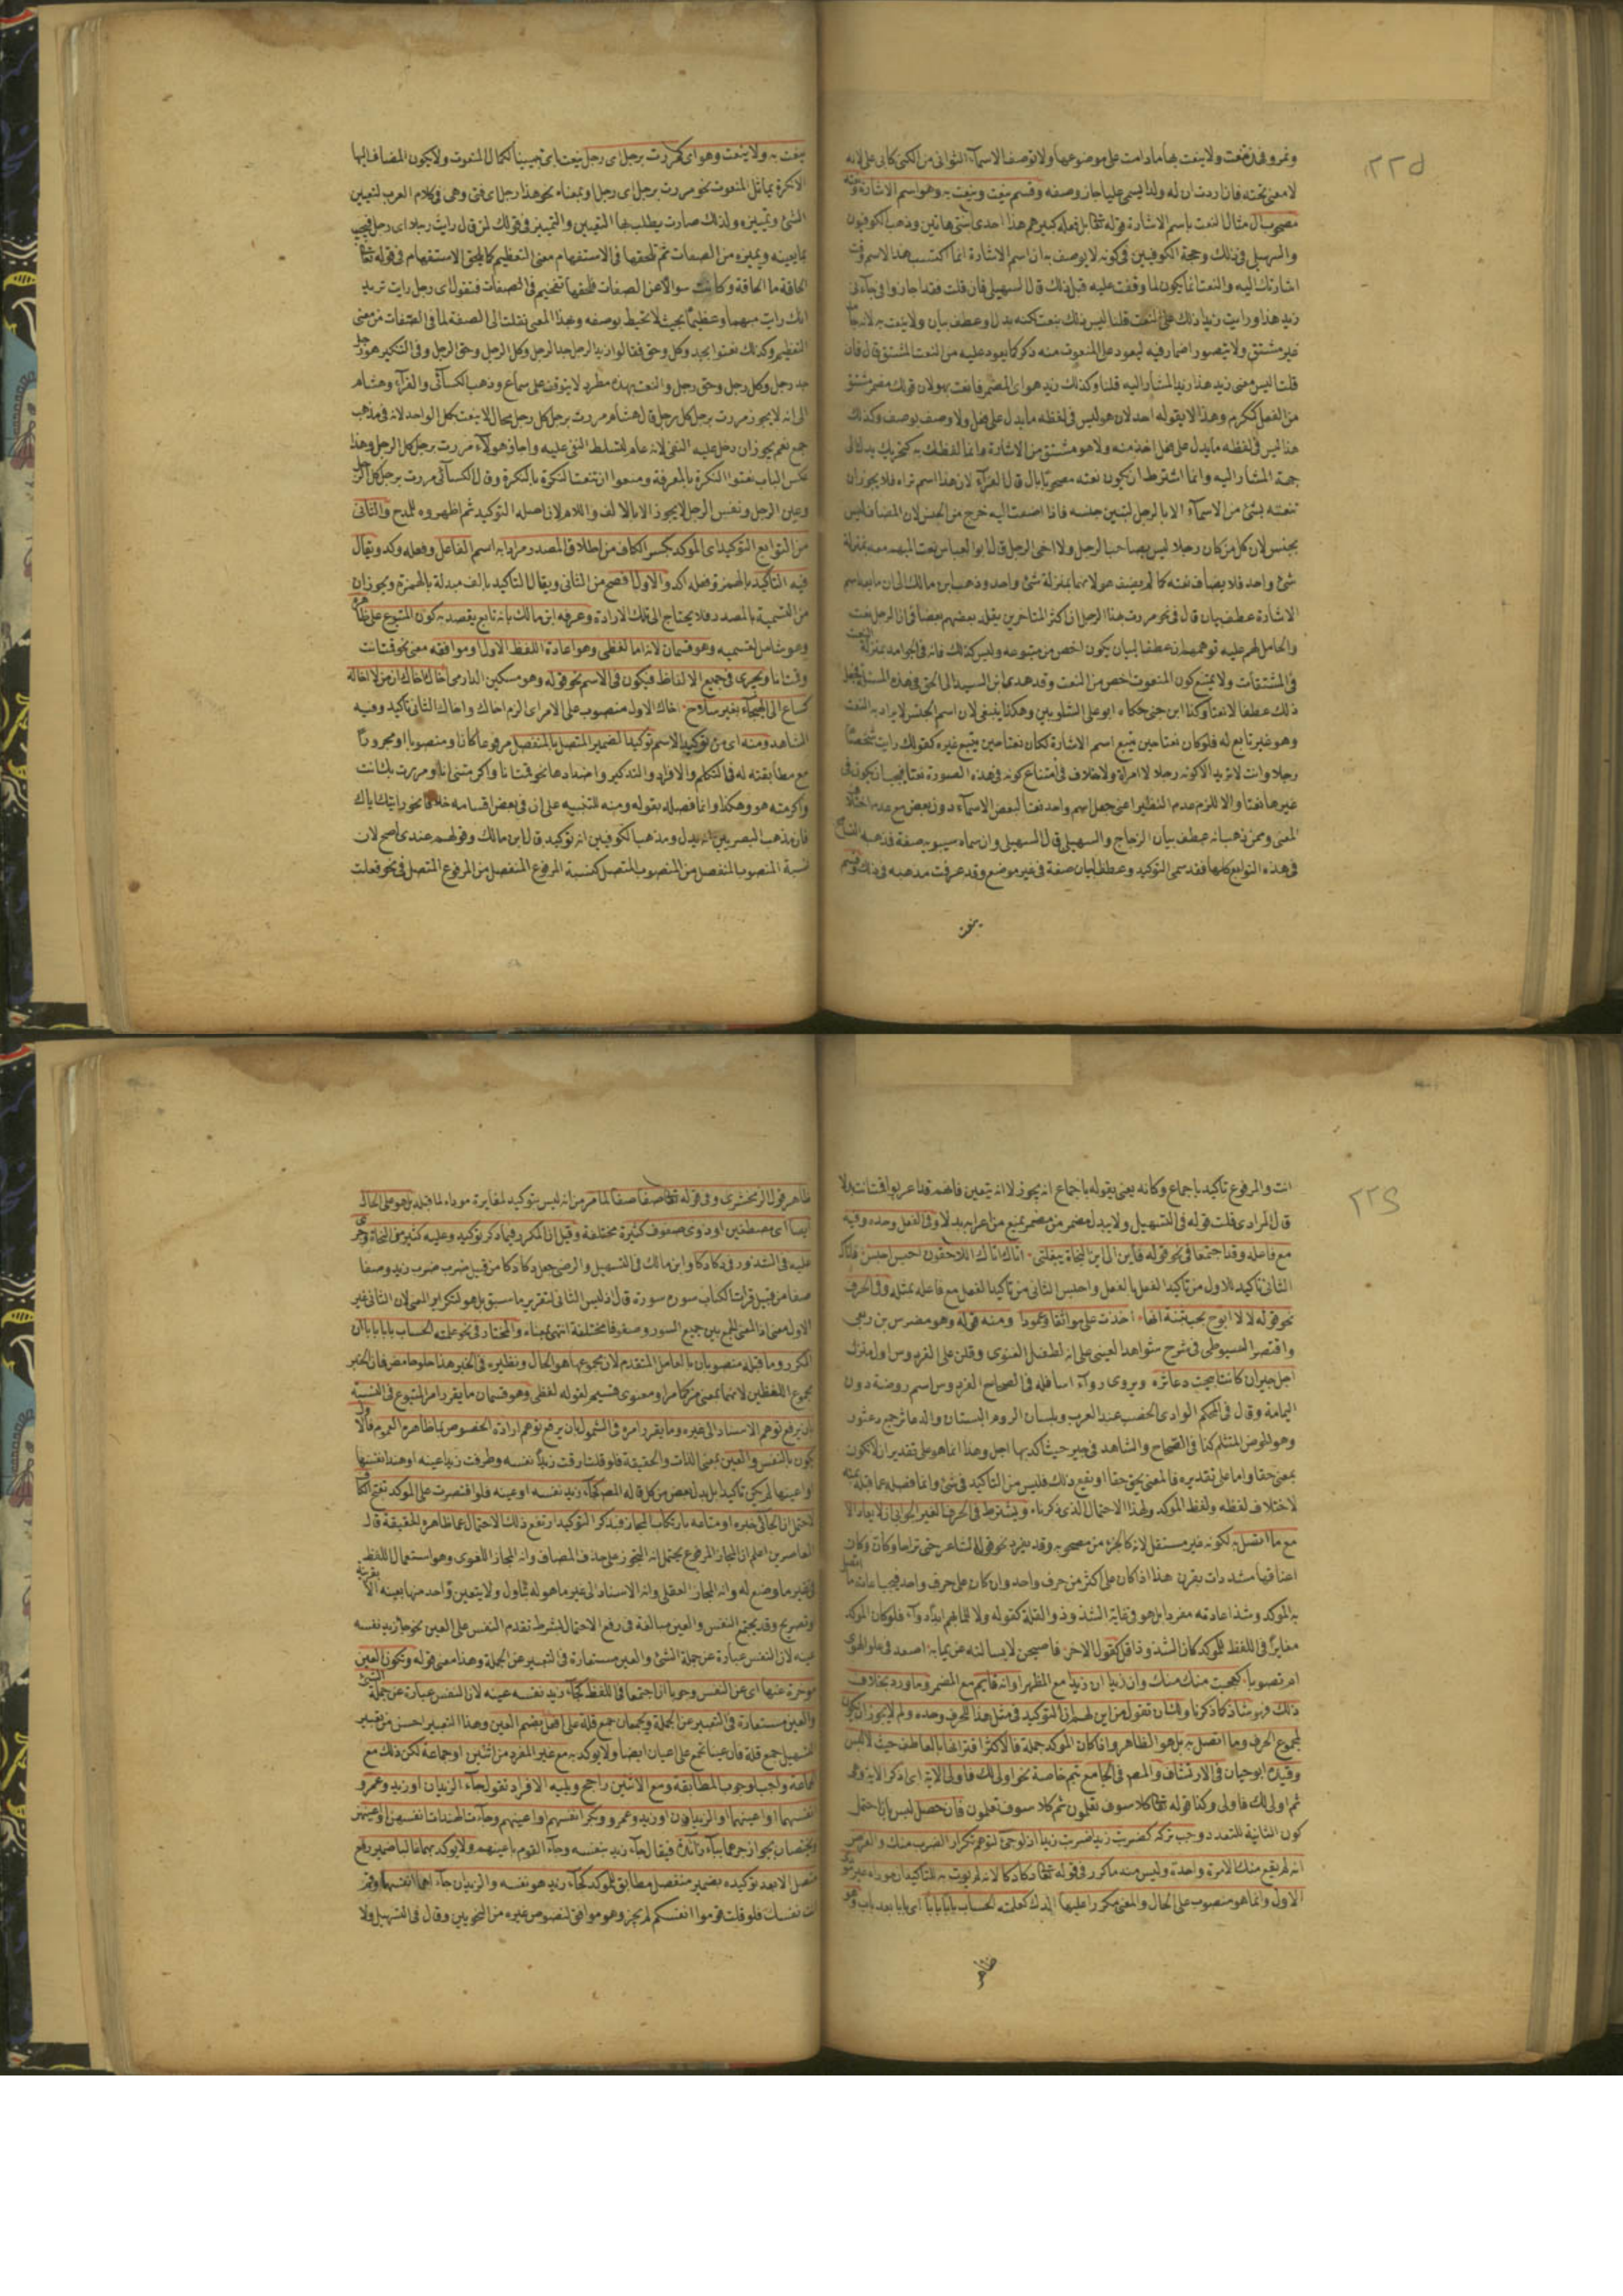 ٢٢٥
ونمرود في ولا ينعت بها ما دامت على موضوعها ولا توصف الاسمآء الثواني من الكنى كابي على لانه
لا معنى تحته فان اردت ان له ولدا يسمى عليا جاز وصفه وقسم ينعت وينعت به وهو اسم الاشارة ونعته
مصحوب ال مثال النعت باسم الاشارة قوله تعالى بل فعله كبيرهم هذا احدى ابنتي هاتين وذهب الكوفيون
والسهيلي في ذلك وحجة الكوفيين في كونه لا يوصف به ان اسم الاشارة انما اكتسب هذا الاسم وقت
اشارتك اليه والنعت انما يكون لما وقفت عليه قبل ذلك قال السهيلي فان قلت فقد اجازوا في جآءني
زيد هذا ورايت زيدا ذلك على النعت قلنا ليس ذلك بنعت لكنه بدل وعطف بيان ولا ينعت به لانه
غير مشتق ولا يتصور اضمار فيه ليعود على المنعوت منه ذكر كما يعود عليه من النعت المشتق قال فان
قلت اليس معنى زيد هذا زيد المشار اليه قلنا وكذلك زيد هو اى المضمر فانعت بهو لان قولك مضمر مشتق
من الفعل كمكرم وهذا لا يقوله احد لان هو ليس في لفظه ما يدل على فعل ولا وصف يوصف وكذلك
هذا ليس في لفظه ما يدل على فعل اخذ منه ولا هو مشتق من الاشارة وانما لفظك به كتحريك يدك الى
جهة المشار اليه وانما اشترط ان يكون نعته مصحوبا بال قال الفرآء لان هذا اسم تراه فلا يجوز ان
تنعته بشئ من الاسمآء الا بالرجل لتبين جنسه فاذا اضفت اليه خرج من الجنس لان المضاف ليس
بجنس لان كل من كان رجلا ليس بصاحب الرجل ولا اخى الرجل قال ابو العباس نعت المبهم معه بمنزلة
شئ واحد فلا يضاف نعته كما لم يضف هو لانهما بمنزلة شئ واحد وذهب ابن مالك الى ان ما بعد اسم
الاشارة عطف بيان قال في نحو مررت بهذا الرجل ان اكثر المتاخرين يقلد بعضهم بعضا في ان الرجل نعت
والحامل لهم عليه توهمهم ان عطف البيان يكون اخص من متبوعه وليس كذلك فانه في الجوامد بمنزلة النعت
في المشتقات ولا يمتنع كون المنعوت اخص من النعت وقد هدى ابن السيد الى الحق في هذه المسئلة فجعل
ذلك عطفا لا نعتا وكذا ابن جنى حكاه ابو على الشلوبين وهكذا ينبغي لان اسم الجنس لا يراد به النعت
وهو غير تابع له فلو كان نعتا حين يتبع اسم الاشارة لكان نعتا حين يتبع غيره كقولك رايت شخصا
رجلا وانت لا تريد الا كونه رجلا لا امراة ولا خلاف في امتناع كونه في هذه الصورة نعتا فيجب ان يكون في
غيرها نعتا والا للزم عدم النظير اعنى جعل اسم واحد نعتا لبعض الاسمآء دون بعض مع عدم اختلاف
المعنى وممن ذهب انه عطف بيان الزجاج والسهيلي قال السهيلي وان سماه سيبويه صفة فذهب
في هذه التوابع كلها فقد سمى التوكيد وعطف البيان صفة في غير موضع وقد عرفت مذهبه في ذلك وقسم
ينعت
ينعت به ولا ينعت وهو اى كمررت برجل اى رجل ينعت اى تبيينا لكمال المنعوت ولا يكون المضاف اليها
الا نكرة يماثل المنعوت نحو مررت برجل اى رجل او بمعناه نحو هذا رجل اى فتى وهي في كلام العرب لتعيين
الشئ وتمييزه ولذلك صارت يطلب بها التعيين والتمييز في قولك لمن قال رايت رجلا اى رجل فيجيب
بما يعينه ويميزه من الصفات ثم تلحقها في الاستفهام معنى التعظيم كما يلحق الاستفهام في قوله تعالى
الحاقة ما الحاقة وكانت سوالا عن الصفات فلحقها تفخيم في الصفات فتقول اى رجل رايت تريد
انك رايت مبهما وعظيما بحيث لا تحيط بوصفه وبهذا المعنى نقلت الى الصفة لما في الصفات من معنى
التعظيم وكذلك نعتوا بجد وكل وحق فقالوا زيد الرجل جد الرجل وكل الرجل وحق الرجل وفي التنكير هو رجل
جد رجل وكل رجل وحق رجل والنعت بهذه مطرد لا يتوقف على سماع وذهب الكسآئي والفرآء وهشام
الى انه لا يجوز مررت برجل كل رجل قال هشام مررت برجل كل رجل محال لا ينعت بكل الواحد لانه في مذهب
جمع نعم يجوز ان دخل عليه النفى لانه عام لتسلط النفى عليه واجاز هولآء مررت برجل كل الرجل وهذا
عكس الباب نعتوا النكرة بالمعرفة ومنعوا ان تنعت النكرة بالنكرة وقال الكسآئي مررت برجل كل الرجل
وعين الرجل ونفس الرجل لا يجوز الا بالالف واللام لان اصله التوكيد ثم اظهروه للمدح والثاني
من التوابع التوكيد اى الموكد بكسر الكاف من اطلاق المصدر مرادا به اسم الفاعل وفعله وكد ويقال
فيه التاكيد بالهمز وفعله اكد والاول افصح من الثاني ويقال التاكيد بالف مبدلة بالهمزة ويجوز ان
من التسمية بالمصدر فلا يحتاج الى تلك الارادة وعرفه ابن مالك بانه تابع يقصد به كون المتبوع على ظاهره
وهو شامل لقسميه وهو قسمان لانه اما لفظى وهو اعادة اللفظ الاول او موافقه معنى نحو قمت انت
وقمت انا ويجرى في جميع الالفاظ فيكون في الاسم نحو قوله وهو مسكين الدارمى اخاك اخاك ان من لا اخا له
كساع الى الهيجآء بغير سلاح اخاك الاول منصوب على الاغرآء اى الزم اخاك واخاك الثاني تاكيد وفيه
الشاهد ومنه اى من توكيد الاسم توكيد الضمير المتصل بالمنفصل مرفوعا كان او منصوبا او مجرورا
مع مطابقته له في التكلم والافراد والتذكير واضدادها نحو قمت انا واكرمتنى انا ومررت بك انت
واكرمته هو وهكذا وانما فصله بقوله ومنه للتنبيه على ان في بعض اقسامه خلافا نحو رايتك اياك
فان مذهب البصريين انه بدل ومذهب الكوفيين انه توكيد قال ابن مالك وقولهم عندى اصح لان
نسبة المنصوب المنفصل من المنصوب المتصل كنسبة المرفوع المنفصل من المرفوع المتصل في نحو فعلت
٢٢٦
انت والمرفوع تاكيد باجماع وكانه يعنى بقوله باجماع انه يجوز لا انه يتعين فانهم قد اعربوا قمت انت بدلا
قال المرادى قلت قوله في التسهيل ولا يبدل مضمر من مضمر يمنع من اعرابه بدلا وفي الفعل وحده وفيه
مع فاعله وقد اجتمعا في نحو قوله فاين الى اين النجاة ببغلتى اتاك اتاك اللاحقون احبس احبس فاتاك
الثاني تاكيد للاول من تاكيد الفعل بالفعل واحبس الثاني من تاكيد الفعل مع فاعله بمثله وفي الحرف
نحو قوله لا لا ابوح بحب بثنة انها اخذت على مواثقا وعهودا ومنه قوله وهو مضرس بن ربعى
واقتصر السيوطى في شرح شواهد العينى على انه لطفيل الغنوى وقلن على الفردوس اول منزل
اجل جير ان كانت ابيحت دعاثره ويروى روآء اسافله في الصحاح الفردوس اسم روضة دون
اليمامة وقال في المحكم الوادى الخصب عند العرب وبلسان الروم البستان والدعاثر جمع دعثور
وهو الحوض المتثلم كذا في الصحاح والشاهد في جير حيث اكد بها اجل وهذا انما هو على تقدير ان تكون
بمعنى حقا واما على تقديره فالمعنى يحق حقا او نفع ذلك فليس من التاكيد في شئ وانما فصله عما قبله
لاختلاف لفظه ولفظ الموكد ولهذا الاحتمال الذى ذكرناه ويشترط في الحرف الغير الجوابى ان لا يعاد الا
مع ما اتصل به لكونه غير مستقل لانه كالجزء من مصحوبه وقد ينفرد نحو قول الشاعر حتى تراها وكان وكان
اعناقها مشددات بقرن هذا اذا كان على اكثر من حرف واحد وان كان على حرف واحد فيجب اعادته ما اتصل
به الموكد وشذ اعادته مفردا بل هو في غاية الشذوذ والقلة كقوله ولا للما بهم ابدا دوآء فلو كان الموكد
مغايرا في اللفظ للموكد كان الشذوذ اقل كقول الاخر فاصبحن لا يسالنه عن بما به اصعد في علو الهوى
ام تصوبا كعجبت منك منك وان زيدا ان زيدا مع المظهر او انه قائم مع المضمر وما ورد بخلاف
ذلك فهو شاذ كما ذكرنا ولك ان تقول من اين لهم ان التوكيد في مثل هذا للحرف وحده ولم لا يجوز ان يكون
لمجموع الحرف وما اتصل به بل هو الظاهر واذا كان الموكد جملة فالاكثر اقترانها بالعاطف حيث لا لبس
وقيده ابو حيان في الارتشاف والمص في الجامع بثم خاصة نحو اولى لك فاولى الآية اى ذكر الآية وهو
ثم اولى لك فاولى وكذا قوله تعالى كلا سوف تعلمون ثم كلا سوف تعلمون فان حصل لبس بان احتمل
كون الثانية للتعدد وجب تركه كضربت زيدا ضربت زيدا اذ لو جئ بثم لتوهم تكرار الضرب منك والغرض
انه لم يقع منك الا مرة واحدة وليس منه ما كرر في قوله تعالى دكا دكا لانه لم يوت به للتاكيد
الاول وانما هو منصوب على الحال والمعنى مكررا عليها الدك كعلمته الحساب بابا بابا اى بابا بعد باب وهو
ظاهر
ظاهر قول الزمخشرى وفي قوله تعالى صفا صفا لما مر من انه ليس بتوكيد لمغايرة مودا لما قبله بل هو على الحال
ايضا اى مصطفين او ذوى صفوف كثيرة مختلفة وقيل ان المكرر فيما ذكر توكيد وعليه كثير من النحاة
عليه في الشذور في دكا دكا وابن مالك في التسهيل والرضى جعل دكا دكا من قبيل ضرب ضرب زيد وصفا
صفا من قبيل قرات الكتاب سورة سورة قال اذ ليس الثاني لتقرير ما سبق بل هو لتكرير المعنى لان الثاني غير
الاول معنى اذ المعنى جميع السور وصفوفا مختلفة انتهى بمعناه والمختار في نحو علمته الحساب بابا بابا ان
المكرر وما قبله منصوبان بالعامل المتقدم لان مجموعهما هو الحال ونظيره في الخبر هذا حلو حامض فان الخبر
مجموع اللفظين لانهما بمعنى مز كما مر او معنوى قسيم لقوله لفظى وهو قسمان ما يقرر امر المتبوع في النسبة
بان يرفع توهم الاسناد الى غيره وما يقرر امره في الشمول بان يرفع توهم ارادة الخصوص بما ظاهره العموم فالاول
يكون بالنفس والعين بمعنى الذات والحقيقة فلو قلت ارقت زيدا نفسه وطرفت زيدا عينه او هندا نفسها
او عينها لم يكن تاكيدا بل بدل بعض من كل قاله المص كجآء زيد نفسه او عينه فلو اقتصرت على الموكد بفتح الكاف
لاحتمل ان الجائى خبره او متاعه بارتكاب المجاز فبذكر التوكيد ارتفع ذلك الاحتمال عما ظاهره الحقيقة قال
العاصرين اعلم ان المجاز المرفوع يحتمل انه التجوز على حذف المضاف وانه المجاز اللغوى وهو استعمال اللفظ
في غير ما وضع له وانه المجاز العقلى وانه الاسناد الى غير ما هو له بتاول ولا يتعين واحد منها بعينه الا بقرينة
او تصريح وقد يجتمع النفس والعين مبالغة في رفع الاحتمال بشرط تقدم النفس على العين نحو جآء زيد نفسه
عينه لان النفس عبارة عن جملة الشئ والعين مستعارة في التعبير عن الجملة وهذا معنى قوله وتكون العين
موخرة عنها اى عن النفس وجوبا ان اجتمعا في اللفظ كجآء زيد نفسه عينه لان النفس عبارة عن جملة الشئ
والعين مستعارة في التعبير عن الجملة ويجمعان جمع قلة على افعل بضم العين وهذا التعبير احسن من تعبير
التسهيل جمع قلة فان عينا تجمع على اعيان ايضا ولا يوكد به مع غير المفرد من اثنين او جماعة لكن ذلك مع
الجماعة واجب لوجوب المطابقة ومع الاثنين راجح ويليه الافراد تقول جآء الزيدان او زيد وعمرو
انفسهما او اعينهما او الزيدون او زيد وعمرو وبكر انفسهم او اعينهم وجآءت الهندات انفسهن او اعينهن
ويختصان بجواز جرهما ببآء زائدة فيقال جآء زيد بنفسه وجآء القوم باعينهم ولا يوكد بهما غالبا ضمير رفع
متصل الا بعد توكيده بضمير منفصل مطابق للموكد كجآء زيد هو نفسه والزيدان جآءا هما انفسهما وقم
انت نفسك فلو قلت قوموا انفسكم لم يجز وهو موافق لنصوص غيره من النحويين وقال في التسهيل ولا